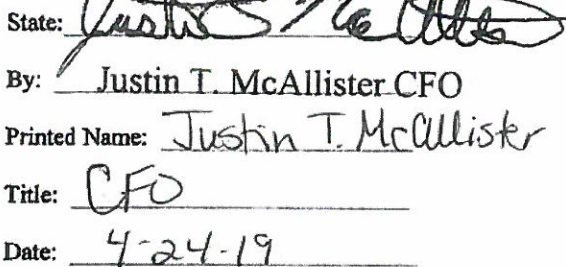 State: Justin T. McAllister
By: Justin T. McAllister CFO
Printed Name: Justin T. McAllister
Title: CFO
Date: 4-24-19